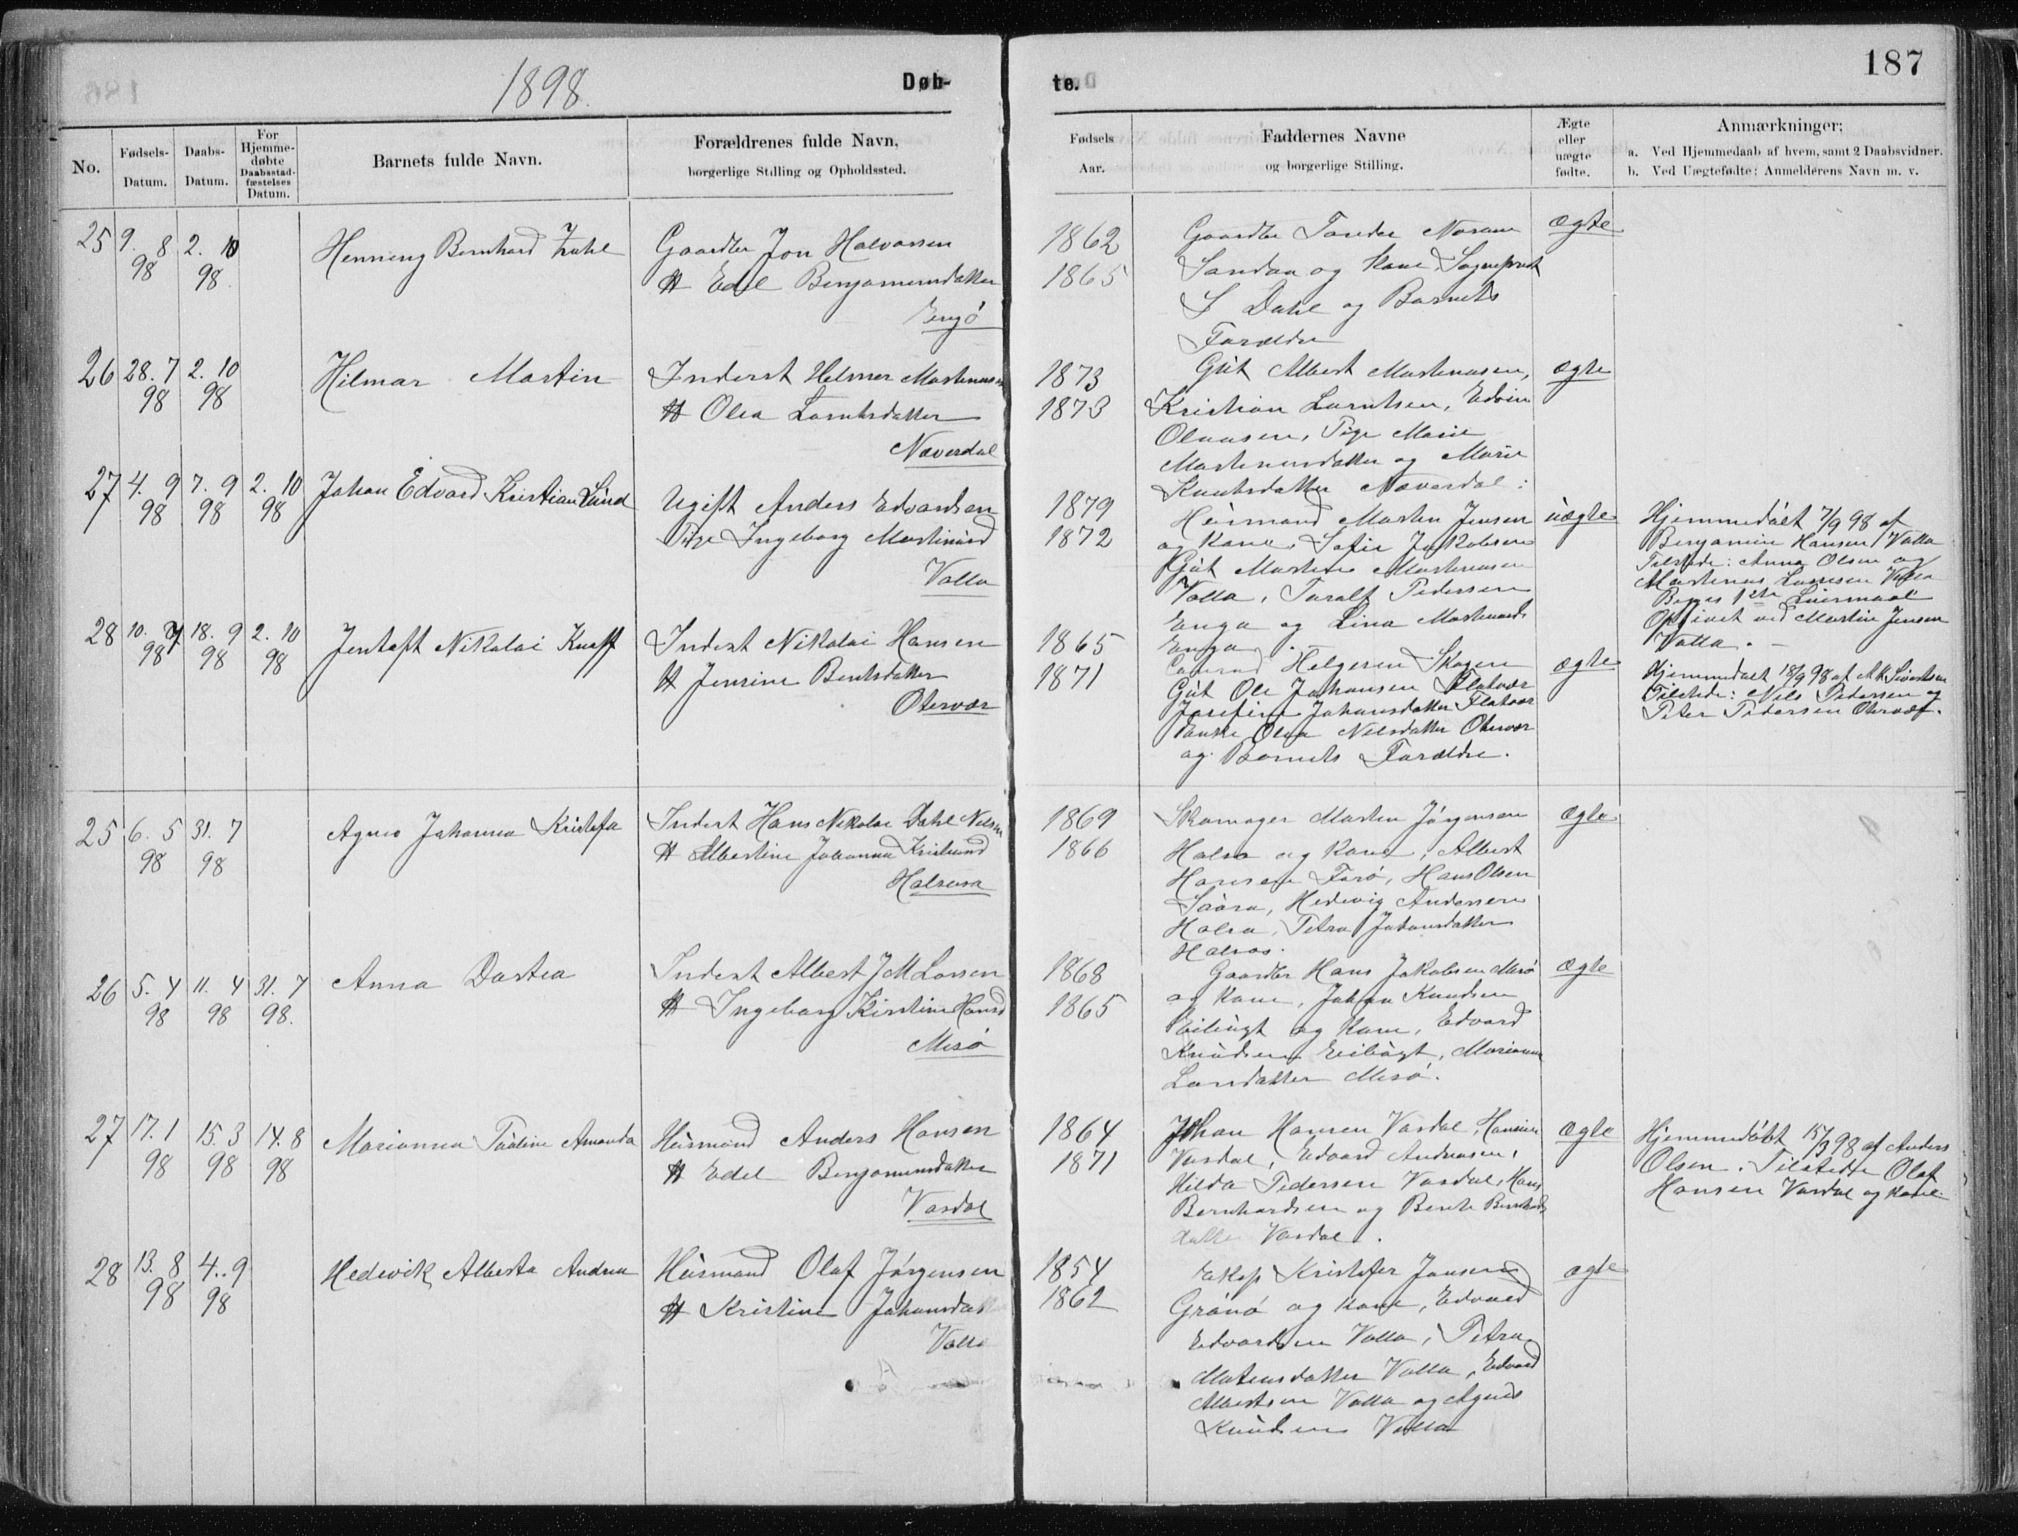 1898.
Døb-
te.
187
No.
Fødsels-
Datum.
Daabs-
Datum.
For
Hjemme-
døbte
Daabsstad-
fæstelses
Datum.
Barnets fulde Navn.
Forældrenes fulde Navn,
borgerlige Stilling og Opholdssted.
Fødsels
Aar.
Faddernes Navne
og borgerlige Stilling.
Ægte
eller
uægte
fødte.
Anmærkninger:
a. Ved Hjemmedaab af hvem, samt 2 Daabsvidner.
b. Ved Uægtefødte: Anmelderens Navn m. v.
25 9. 8 98
2. 10 98
Henning Bernhard
Gaardbr Jon Halvorsen
H Edel Benjaminsdatter
Engö
1862
1865
Gaardbr
og Kone, Sogneprest
S Dahl og Barnets
Forældre
ægte
26 28. 7 98
2. 10 98
Hilmar Martin
Inderst Helmer Martinussen
H Olea Lorntsdatter
Næverdal
1873
1873
Gút Albert Martinusen,
Kristian Lorntsen, Edvin
Olausen, Pige Marie
Martinusdatter og Marie
Knutsdatter Næverdal
ægte
27 4. 9 98
7. 9 98
2. 10 98
Johan Edvard Kristian Lúnd
Ugift Anders Edvardsen
Pige Ingeborg Martinusd
Valla
1879
1872
Húsmand Martin Jensen
og Kone, Sofie Jakobsen
Gút Martin Martinusen
Valla, Toralf Pedersen
Enga og Lina Martinusd
Enga.
úægte
Hjemmedöbt 7/9 98 af
Benjamin Hansen Valla
Tilstede: Anna Olsen og
Martinus Larsen Valla
Beges 1ste Leiermaal
Opgivet ved Martin Jensen
Valla.
28 10. 7 98
18. 9 98
2. 10 98
Jentoft Nikolai Knoff
Inderst Nikolai Hansen
H Jensine Bentsdatter
Otervær
1865
1871
Helgesen Skogen
Gút Ole Johansen Flatvær
Josefine Johansdatter Flatvær
Olea Nilsdatter Otervær
og Barnets Forældre.
ægte
Hjemmedöbt 18/9 98 af Sivertsen
Tilstede: Nils Pedersen og
Peter Pedersen Otervær.
25 6. 5 98
31. 7 98
Agnes Johanna Kristofa
Inderst Hans Nikolai Dahl Nilsen
H Albertine Johanna Kristensd
Halsosa
1869
1866
Skomager Martin Jörgensen
Halsa og Kone, Albert
Hansen Forö, Hans Olsen
Hedevig Andersen
Halsa, Petra Johansdatter
Halsos.
Ægte
26 5. 4 98
11. 4 98
31. 7 98.
Anna Dortea
Inderst Albert J M Larsen
H Ingeborg Kirstine Hansd
Mesö
1868
1865
Gaardbr Hans Jakobsen Mesö
og Kone, Johan Knudsen
Eilúgt og Kone, Edvard
Knúdsen Eilúgt, Marianne
Larsdatter Mesö.
Ægte
27 17. 1 98
15. 3 98
14. 8 98
Marianna Paúline Amanda
Húsmand Anders Hansen
H Edel Benjaminsdatter
Vasdal
1864
1871
Johan Hansen Vasdal, Hansine
Vasdal, Edvard Andreasen,
Hilda Pedersen Vasdal, Hans
Bernhardsen og Berit Bernhards
datter Vasdal.
Ægte
Hjemmedöbt 15/3 98 af Anders
Olsen. Tilstede Olaf
Hansen Vasdal og Kone.
28 13. 8 98
4. 9 98
Hedevik Alberta Andrea
Húsmand Olaf Jörgensen
H Kristine Johansdat
Valla
1854
1862
Kristofer Jansen
Grönö og Kone, Edvard
Edvardsen Valla, Petra
Matiusdatter Valla, Edvard
Albertsen Valla og Agnes
Knúdsen Valla
ægte